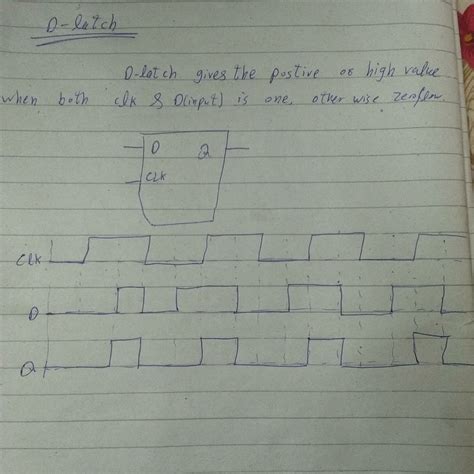 D-latch
D-latch gives the postive or high value
when both clk & D(input) is one, other wise zero/low.
D Q
CLK
CLK
D
Q